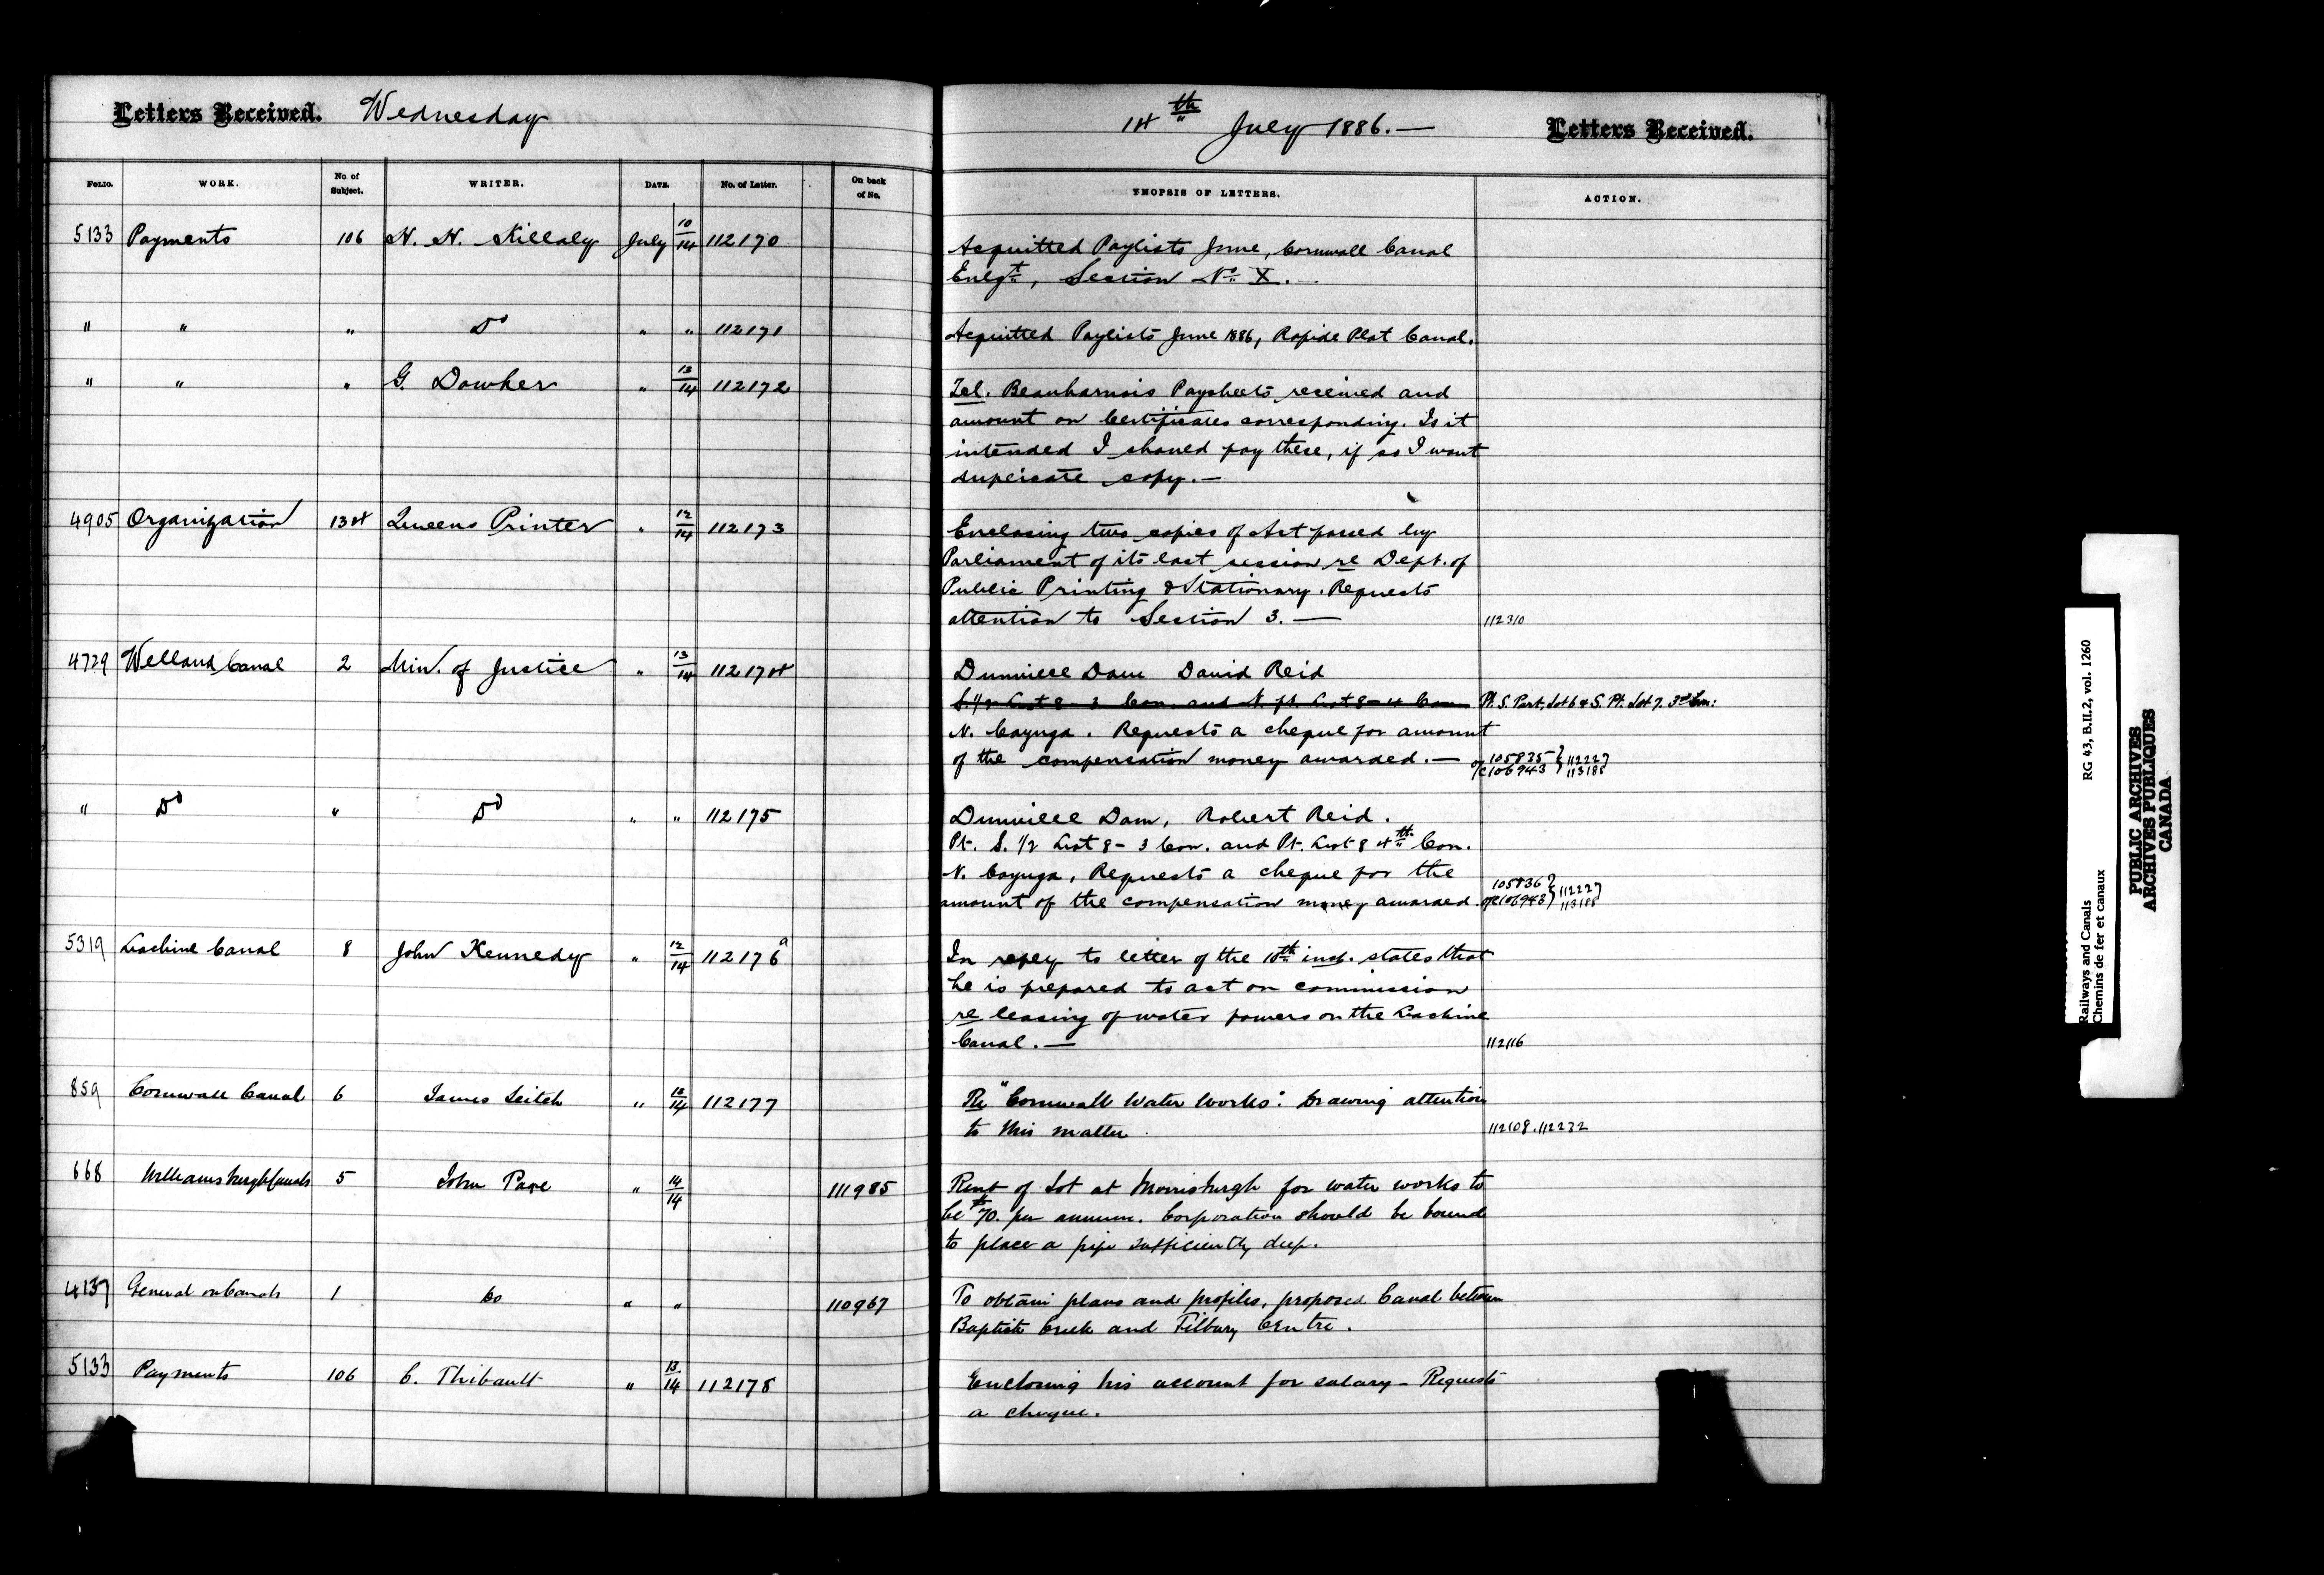 Letters Received. Wednesday
14th July 1886. — Letters Received.
FOLIO. WORK. No. of Subject. WRITER. DATE. No. of Letter. On back of No. SYNOPSIS OF LETTERS. ACTION.
5133 Payments 106 H. H. Killaly July 10/14 112170 Acquitted Paylists June, Cornwall Canal
Enlgt, Section No X. —
" " " Do " " 112171 Acquitted Paylists June 1886, Rapide Plat Canal.
" " " G. Dowker " 13/14 112172 Tel. Beauharnois Paysheets received and
amount on Certificates corresponding. Is it
intended I should pay these, if so I want
duplicate copy. —
4905 Organization 134 Queens Printer " 12/14 112173 Enclosing two copies of Act passed by
Parliament of its last session re Dept. of
Public Printing & Stationary. Requests
attention to Section 3. — 112310
4729 Welland Canal 2 Min. of Justice " 13/14 112174 Dunnville Dam David Reid
S. 1/2 Lot 8 - 3 Con. and N. pt. Lot 8 - 4 Con Pt. S. Part, Lot 6 & S. Pt. Lot 7. 3rd Con:
N. Cayuga. Requests a cheque for amount
of the compensation money awarded. — 105835 } 112227
o/c 106943 } 113188
" Do " Do " " 112175 Dunnville Dam, Robert Reid.
Pt. S. 1/2 Lot 8 - 3 Con. and Pt. Lot 8 4th Con.
N. Cayuga, Requests a cheque for the
amount of the compensation money awarded. 105836 } 112227
o/c 106943 } 113188
5319 Lachine Canal 8 John Kennedy " 12/14 112176a In reply to letter of the 10th inst. states that
he is prepared to act on commission
re leasing of water powers on the Lachine
Canal. — 112116
859 Cornwall Canal 6 James Leitch " 12/14 112177 Re "Cornwall Water Works". Drawing attention
to this matter. 112108. 112232
668 Williamsburgh Canals 5 John Page " 14/14 111985 Rent of Lot at Morrisburgh for water works to
be $70. per annum. Corporation should be bound
to place a pipe sufficiently deep.
4137 General on Canals 1 Do " " 110967 To obtain plans and profiles, proposed Canal between
Baptiste Creek and Tilbury Centre.
5133 Payments 106 C. Thibault " 13/14 112178 Enclosing his account for salary - Requests
a cheque.
Railways and Canals RG 43, B.II.2, vol. 1260
Chemins de fer et canaux
PUBLIC ARCHIVES
ARCHIVES PUBLIQUES
CANADA